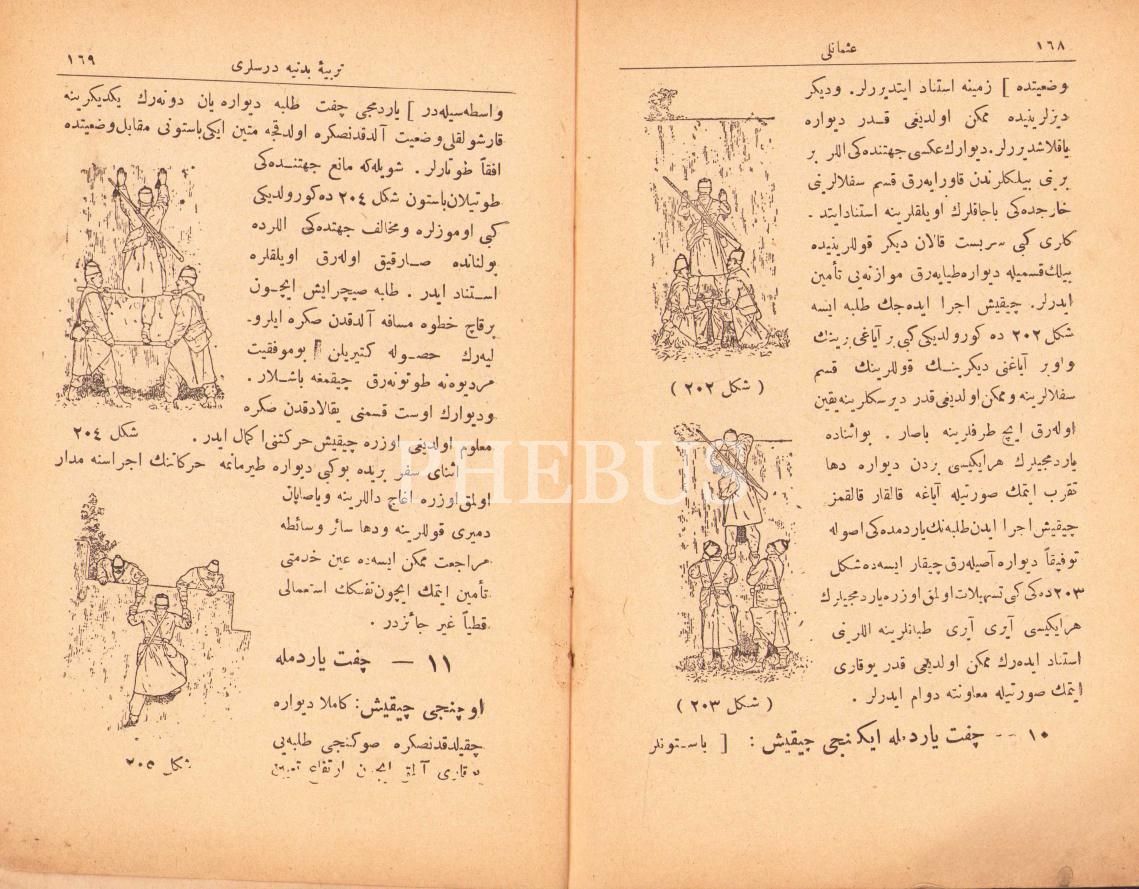 ١٦٨
عثمانلی
وضعیتده ] زمینه استناد ایتدیررلر. ودیکر
دیزلرینیده ممکن اولدیغی قدر دیواره
یاقلاشدیررلر. دیوارك عکسی جهتنده‌کی اللر بر
برینی بیلکلرندن قاورایه‌رق قسم سفلالرینی
خارجده‌کی باجاقلرك اویلقلرینه استناد ایتد .
کاری کبی سربست قالان دیکر قوللرینیده
بیلك قسمیله دیواره طیایه‌رق موازنه‌یی تأمین
ایدرلر. چیقیش اجرا ایده‌جك طلبه ایسه
شکل ٢٠٢ ده کورولدیکی کبی بر آیاغی برینك
واوبر آیاغنی دیکرینـك قوللرینك قسم
سفلالرینه و ممکن اولدیغی قدر دیرسکلرینه یقین
اوله‌رق ایچ طرفلرینه باصار . بواثناده
یاردمجیلرك هر ایکیسی بردن دیواره دها
تقرب ایتمك صورتیله آیاغه قالقار قالقمز
چیقیش اجرا ایدن طلبه‌نك یاردمده‌کی اصوله
توفیقاً دیواره آصیله‌رق چیقار ایسه‌ده شکل
٢٠٣ ده‌کی کبی تسهیلات اولمق اوزره یاردمجیلرك
هر ایکیسی آیری آیری طبانلرینه اللرنی
استناد ایده‌رك ممکن اولدیغی قدر یوقاری
ایتمك صورتیله معاونته دوام ایدرلر .
١٠ -- چفت یاردمله ایکنجی چیقیش : [ باستونلر
( شکل ٢٠٢ )
( شکل ٢٠٣ )
١٦٩
تربیۀ بدنیه درسلری
واسطه‌سیله‌در ] یاردمجی چفت طلبه دیواره یان دونه‌رك یکدیکرینه
قارشولقلی وضعیت آلدقدنصکره اولدقجه متین ایکی باستونی مقابل وضعیتده
افقاً طوتارلر . شویله‌که مانع جهتنده‌کی
طوتیلان باستون شکل ٢٠٤ ده کورولدیکی
کبی اوموزلره ومخالف جهتده‌کی اللرده
بولنانده صارقیق اوله‌رق اویلقلره
استناد ایدر . طلبه صیچرایش ایچون
برقاچ خطوه مسافه آلدقدن صکره ایلرو-
لیه‌رك حصوله کتیریلن بوموفقیت
مردیوه‌نه طوتونه‌رق چیقمغه باشلار .
ودیوارك اوست قسمنی یقالادقدن صکره
معلوم اولدیغی اوزره چیقیش حرکتنی اکمال ایدر .
اثنای سفر بریده بوکبی دیواره طیرمانمه حرکاتنك اجراسنه مدار
اولمق اوزره آغاج داللرینه ویاصاپان
دمیری قوللرینه ودها سائر وسائطه
مراجعت ممکن ایسه‌ده عین خدمتی
تأمین ایتمك ایچون تفنکك استعمالی
قطعیاً غیر جائزدر .
١١ — چفت یاردمله
اوچنجی چیقیش: کاملا دیواره
چقیلدقدنصکره صوکنجی طلبه‌یی
یوقاری آلمق ایچون ارتفاع تعیین
شکل ٢٠٤
شکل ٢٠٥
PHEBUS